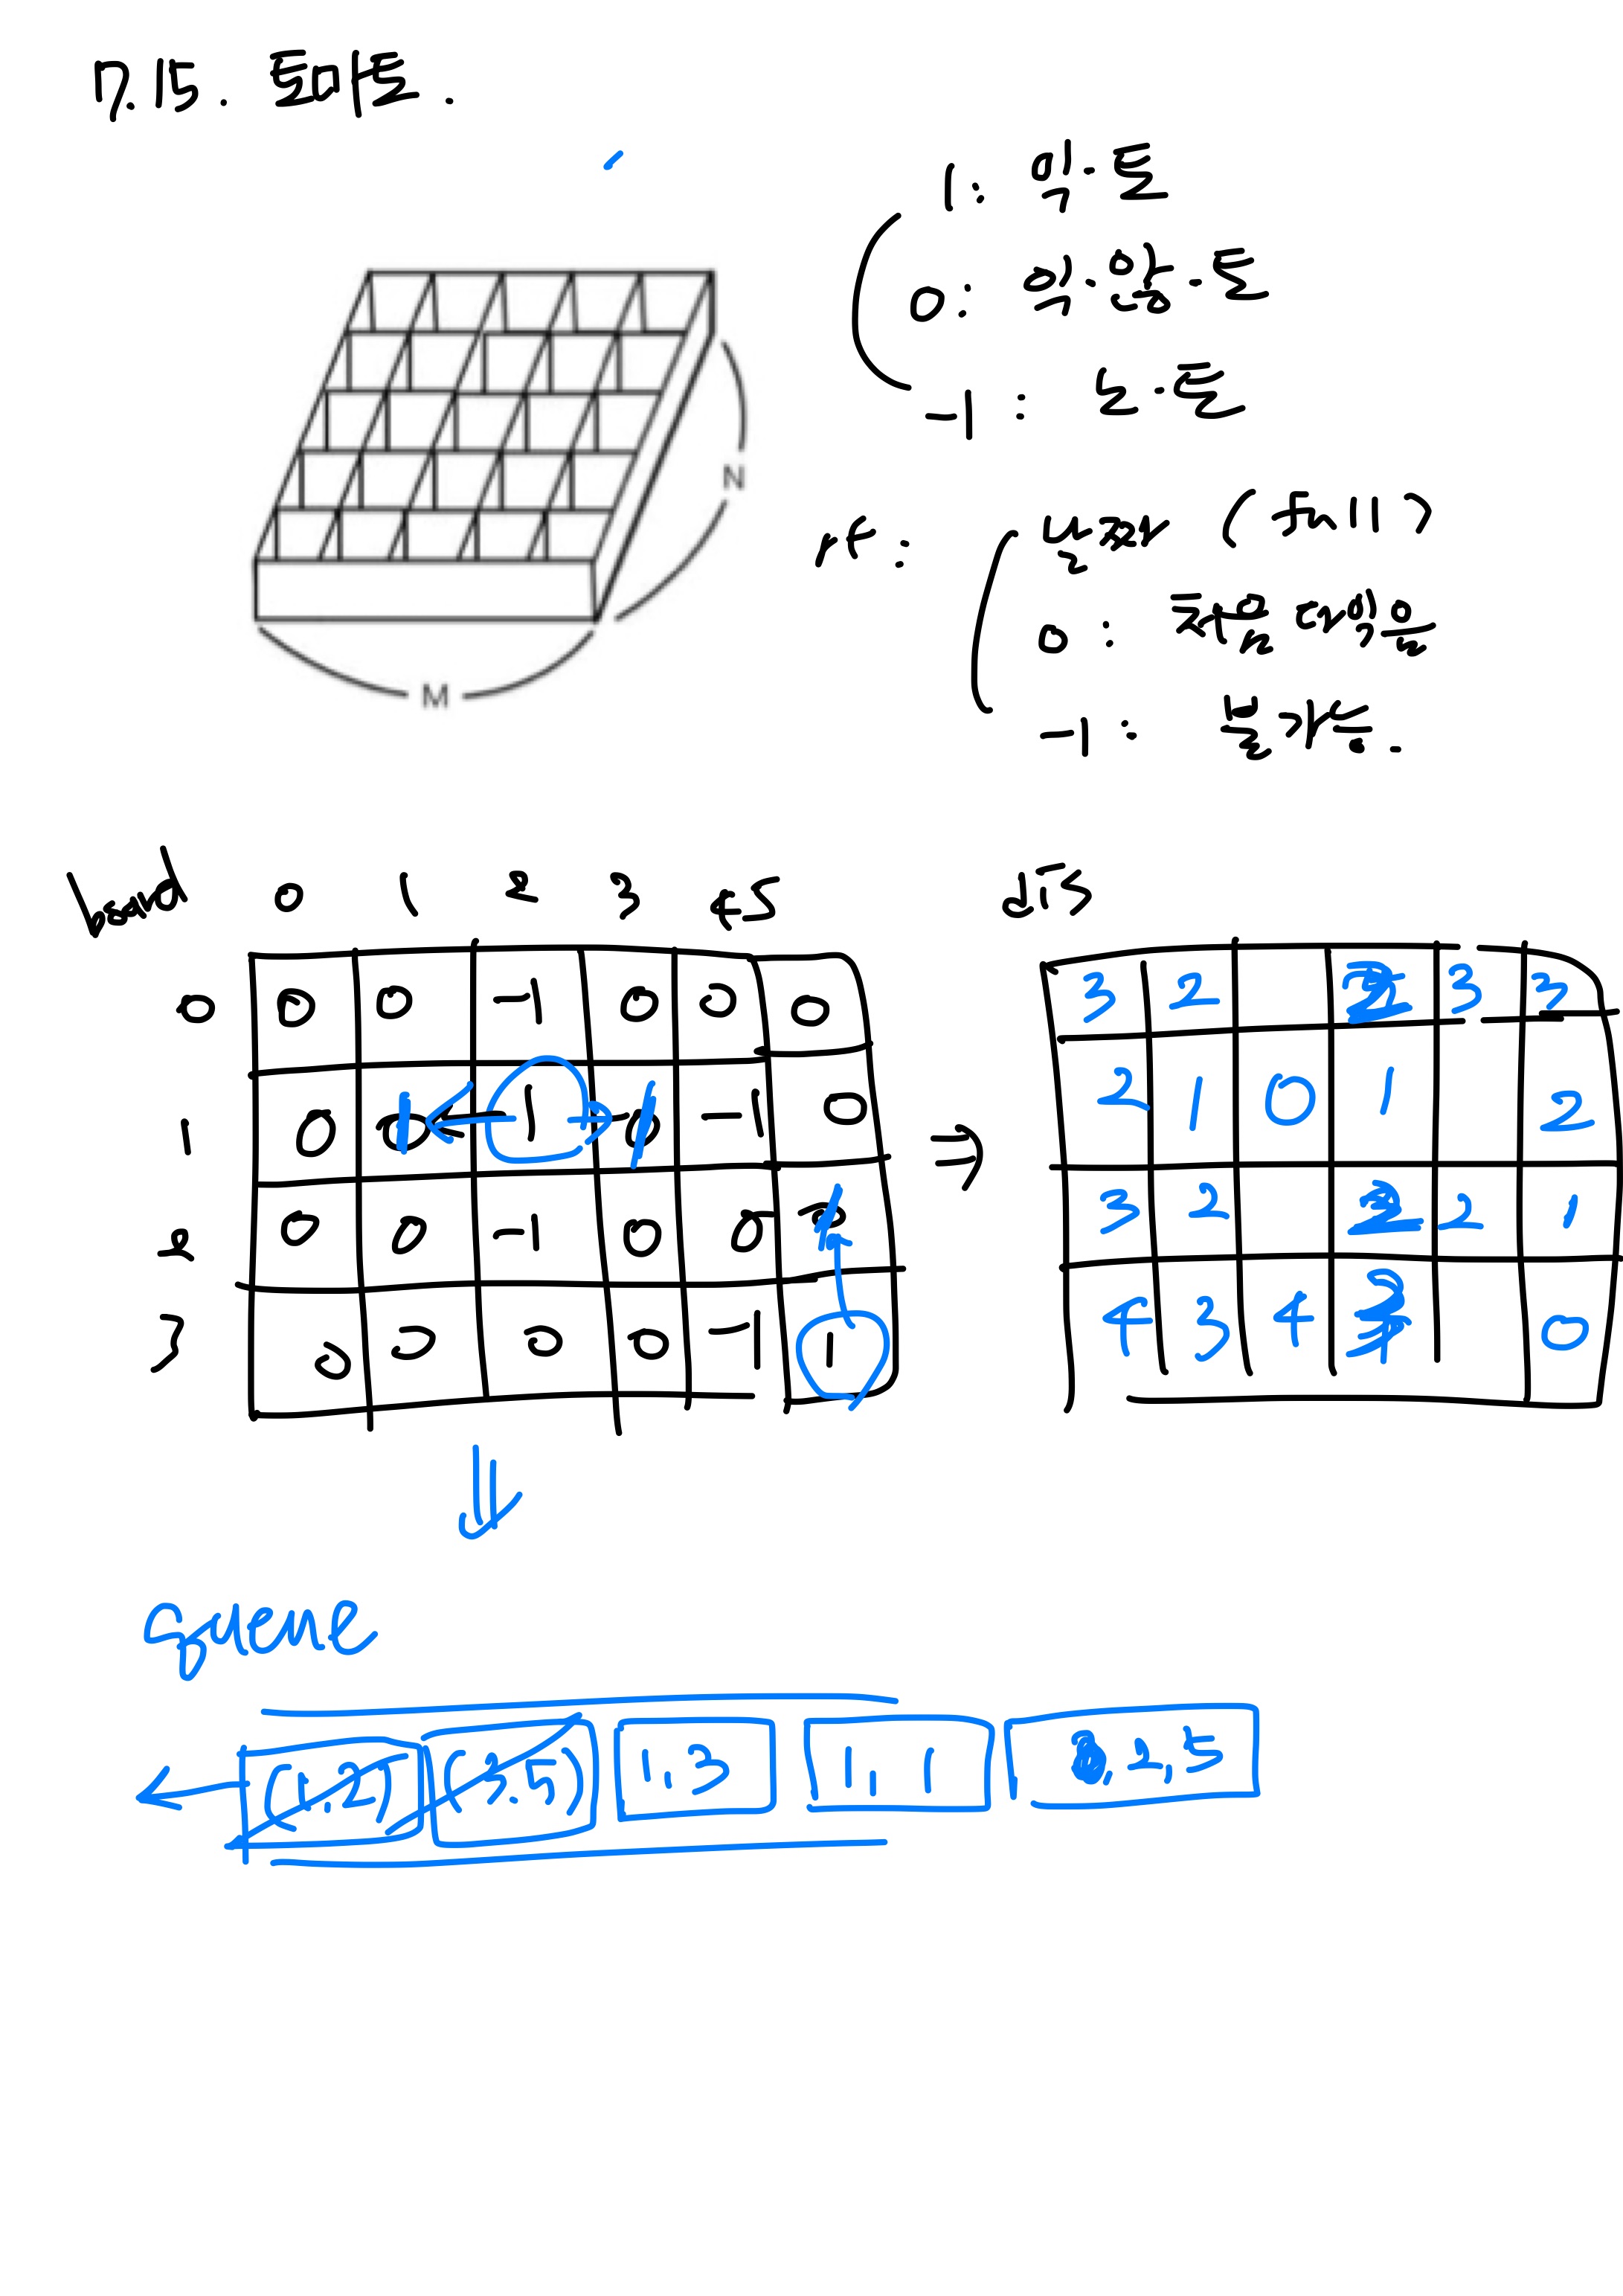 7.15. 토마토.
1: 익·토
0: 익·않·토
-1: 노·토
N
M
rt: 날짜 (full)
0: 처음 다익음
-1: 불가능.
board 0 1 2 3 4 5
0 0 0 -1 0 0 0
1 0 1 -1 0
2 0 0 -1 0 0
3 0 0 0 0 -1 1
dis
3 2 3 3
2 1 0 1 2
3 2 2 1
4 3 4 0
queue
(1,2) (3,5) 1,3 1,1 2,5